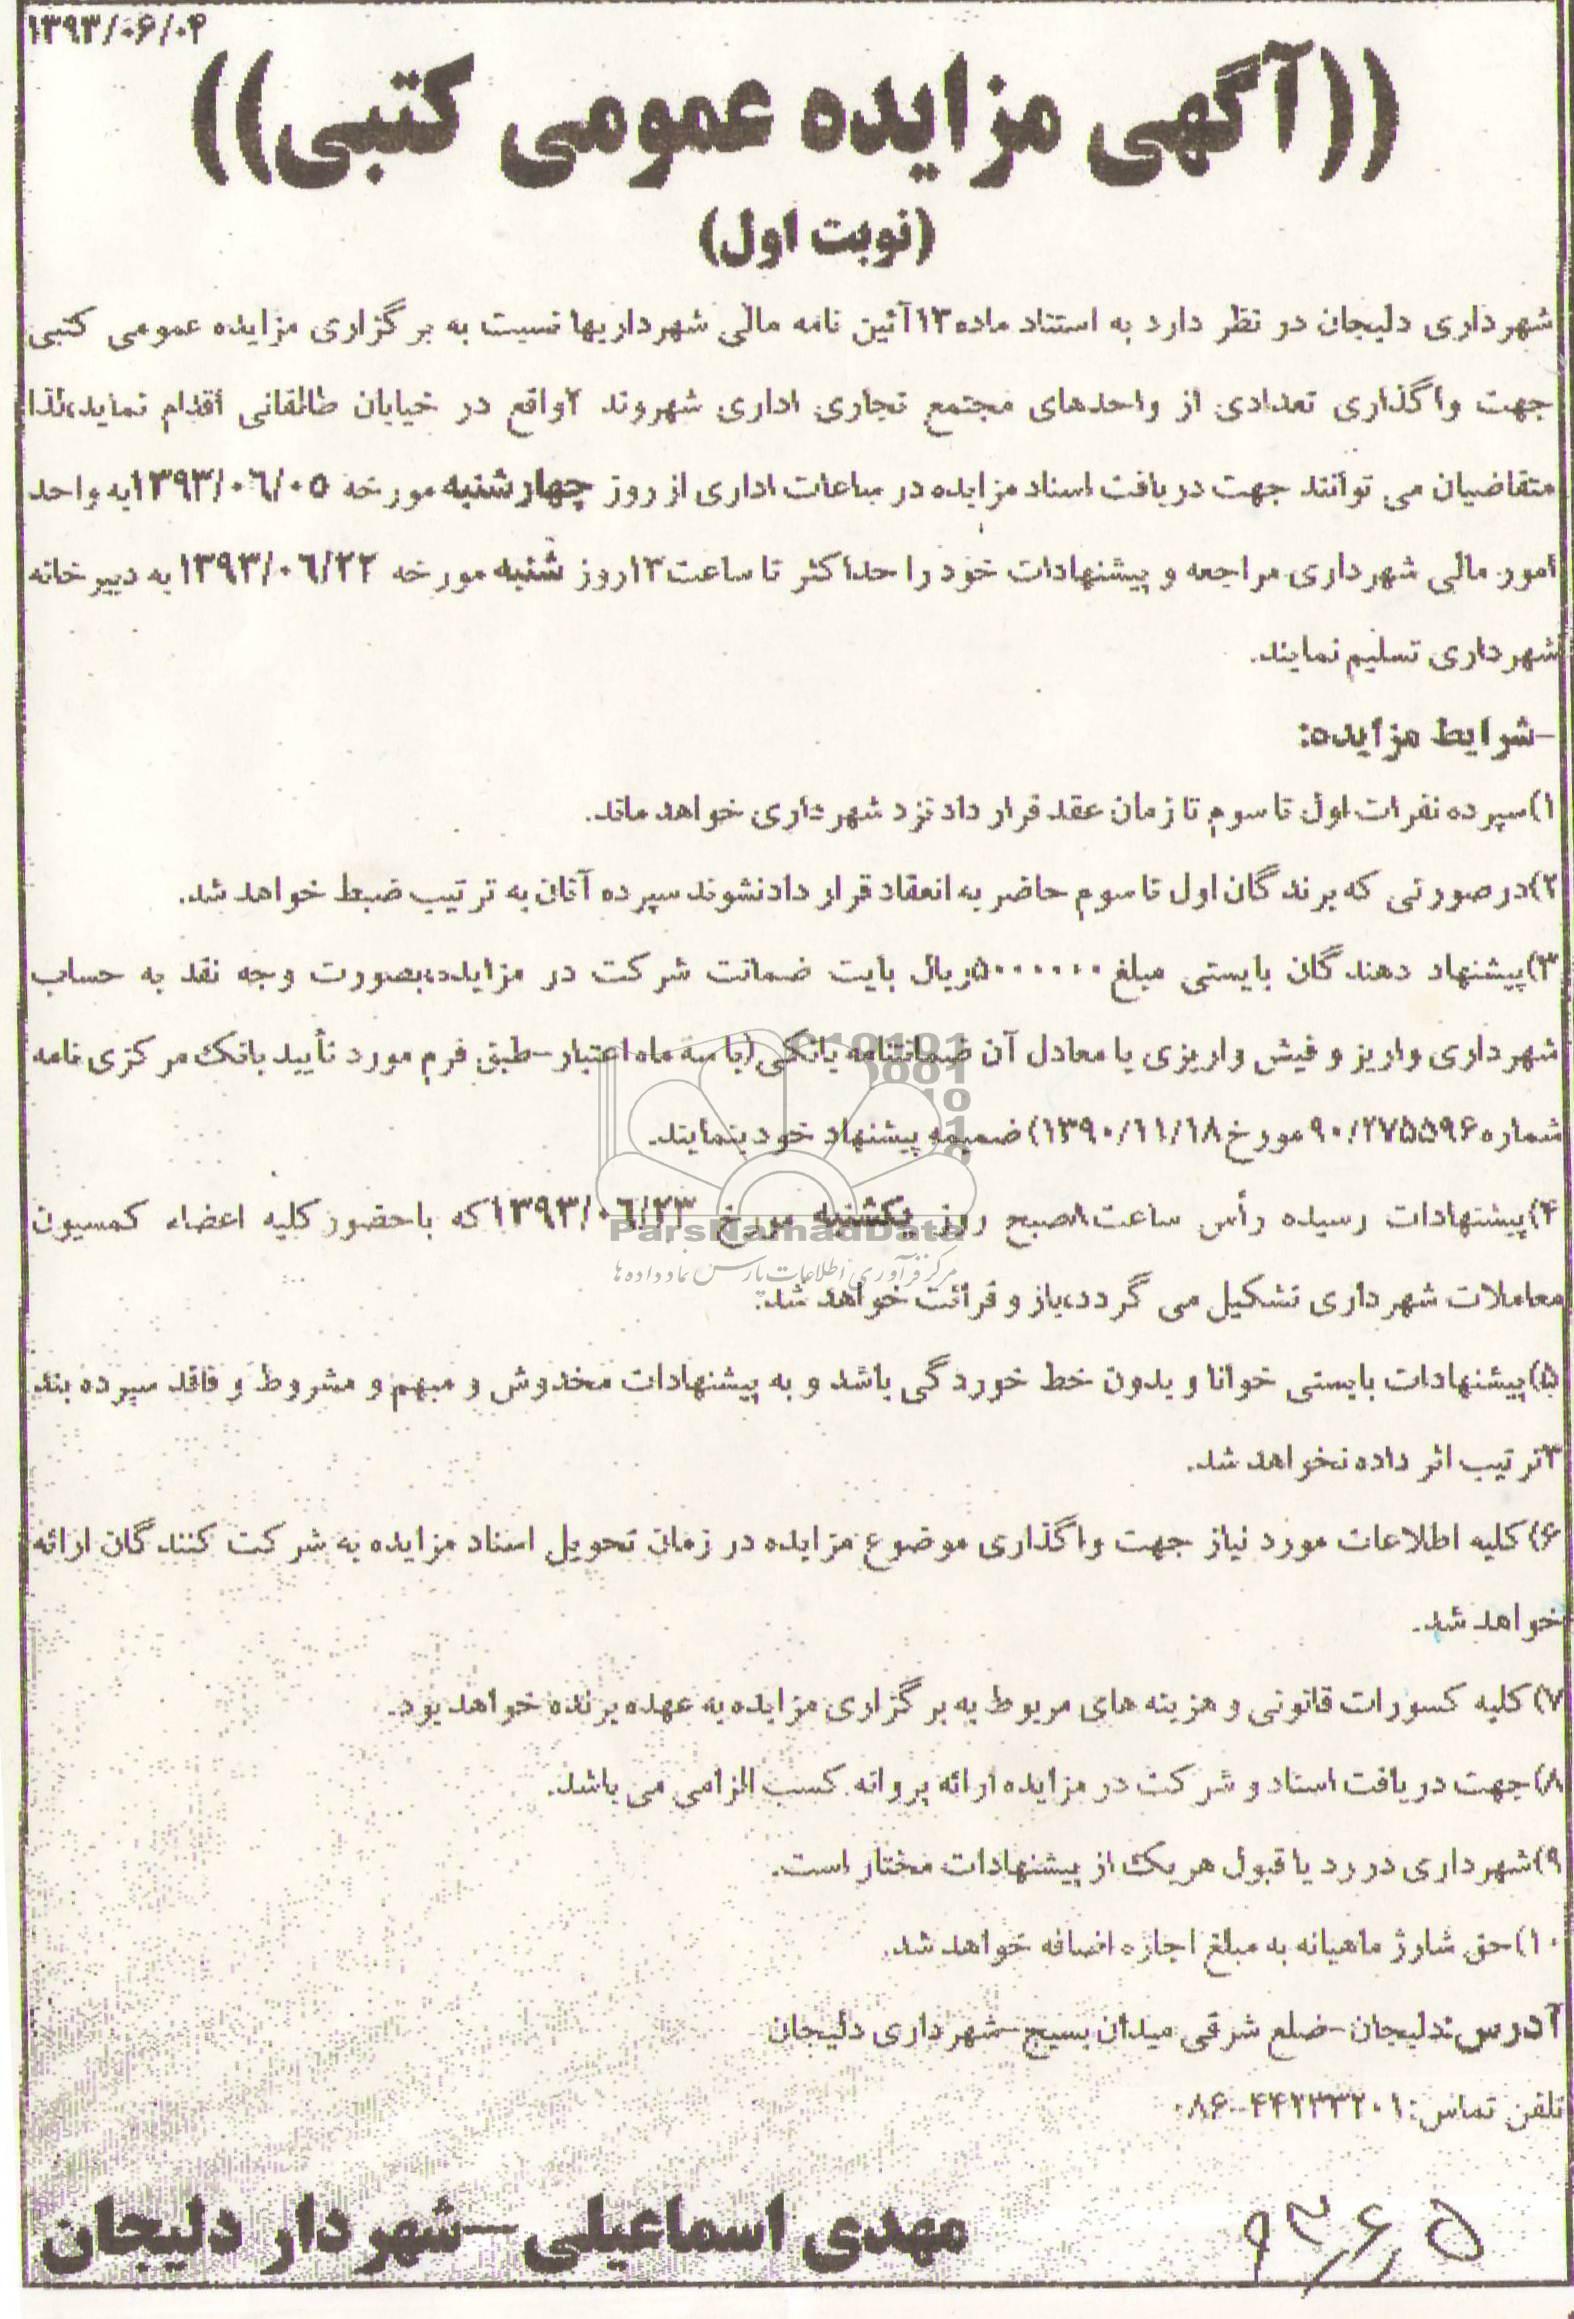 ۱۳۹۳/۰۶/۰۴
((آگهی مزایده عمومی کتبی))
(نوبت اول)
شهرداری دلیجان در نظر دارد به استناد ماده۱۳آئین نامه مالی شهرداریها نسبت به برگزاری مزایده عمومی کتبی
جهت واگذاری تعدادی از واحدهای مجتمع تجاری اداری شهروند ۲واقع در خیابان طالقانی اقدام نماید،لذا
متقاضیان می توانند جهت دریافت اسناد مزایده در ساعات اداری از روز چهارشنبه مورخه ۱۳۹۳/۰۶/۰۵به واحد
امور مالی شهرداری مراجعه و پیشنهادات خود را حداکثر تا ساعت۱۳روز شنبه مورخه ۱۳۹۳/۰۶/۲۲ به دبیرخانه
شهرداری تسلیم نمایند.
-شرایط مزایده:
۱)سپرده نفرات اول تا سوم تا زمان عقد قرار داد نزد شهرداری خواهد ماند.
۲)در صورتی که برندگان اول تا سوم حاضر به انعقاد قرار داد نشوند سپرده آنان به ترتیب ضبط خواهد شد.
۳)پیشنهاد دهندگان بایستی مبلغ ۵۰۰۰۰۰۰ریال بابت ضمانت شرکت در مزایده،بصورت وجه نقد به حساب
شهرداری واریز و فیش واریزی یا معادل آن ضمانتنامه بانکی(با سه ماه اعتبار-طبق فرم مورد تأیید بانک مرکزی نامه
شماره ۹۰/۲۷۵۵۹۶مورخ ۱۳۹۰/۱۱/۱۸) ضمیمه پیشنهاد خود بنمایند.
۴)پیشنهادات رسیده رأس ساعت۸صبح روز یکشنبه مورخ ۱۳۹۳/۰۶/۲۳که باحضور کلیه اعضاء کمسیون
ParsNamadData
مرکز فرآوری اطلاعات پارس نماد داده ها
معاملات شهرداری تشکیل می گردد،باز و قرائت خواهد شد.
۵)پیشنهادات بایستی خوانا و بدون خط خوردگی باشد و به پیشنهادات مخدوش و مبهم و مشروط و فاقد سپرده بند
۳ترتیب اثر داده نخواهد شد.
۶)کلیه اطلاعات مورد نیاز جهت واگذاری موضوع مزایده در زمان تحویل اسناد مزایده به شرکت کنندگان ارائه
خواهد شد.
۷)کلیه کسورات قانونی و هزینه های مربوط به برگزاری مزایده به عهده برنده خواهد بود.
۸)جهت دریافت اسناد و شرکت در مزایده ارائه پروانه کسب الزامی می باشد.
۹)شهرداری در رد یا قبول هریک از پیشنهادات مختار است.
۱۰)حق شارژ ماهیانه به مبلغ اجاره اضافه خواهد شد.
آدرس:دلیجان-ضلع شرقی میدان بسیج-شهرداری دلیجان
تلفن تماس:۰۸۶-۴۴۲۳۳۲۰۱
مهدی اسماعیلی-شهردار دلیجان
۹۳,۶,۵